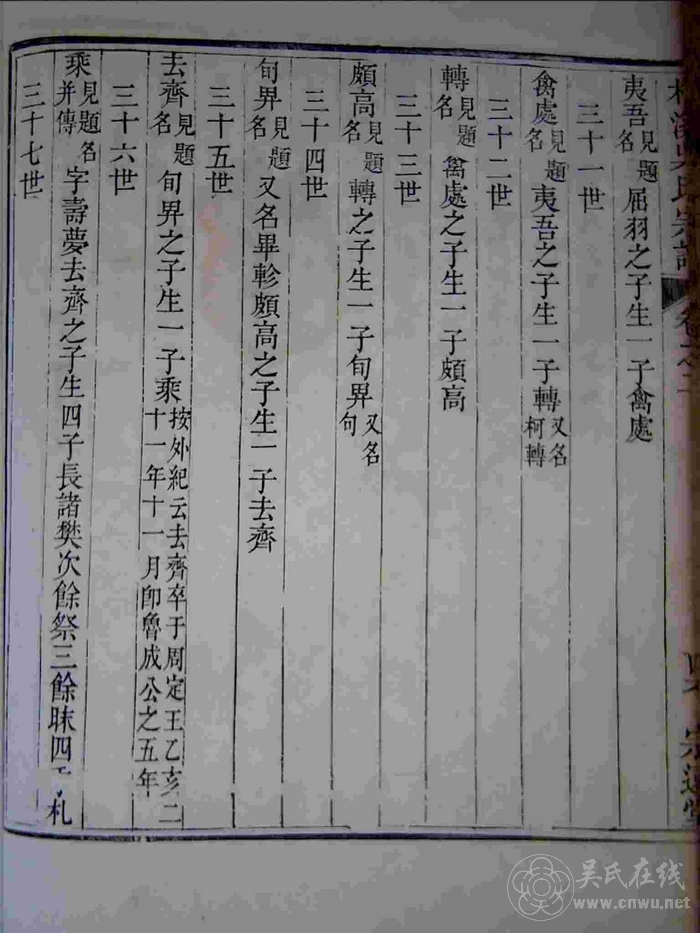 吳氏宗譜
夷吾見題名屈羽之子生一子禽處
三十一世
禽處見題名夷吾之子生一子轉又名柯轉
三十二世
轉見題名禽處之子生一子頗高
三十三世
頗高見題名轉之子生一子旬畀又名句
三十四世
旬畀見題名又名畢軫頗高之子生一子去齊
三十五世
去齊見題名旬畀之子生一子乘按外紀云去齊卒于周定王乙亥二十一年十一月卽魯成公之五年
三十六世
乘見題名并傳字壽夢去齊之子生四子長諸樊次餘祭三餘眛四 札
三十七世
吴氏在线
www.cnwu.net